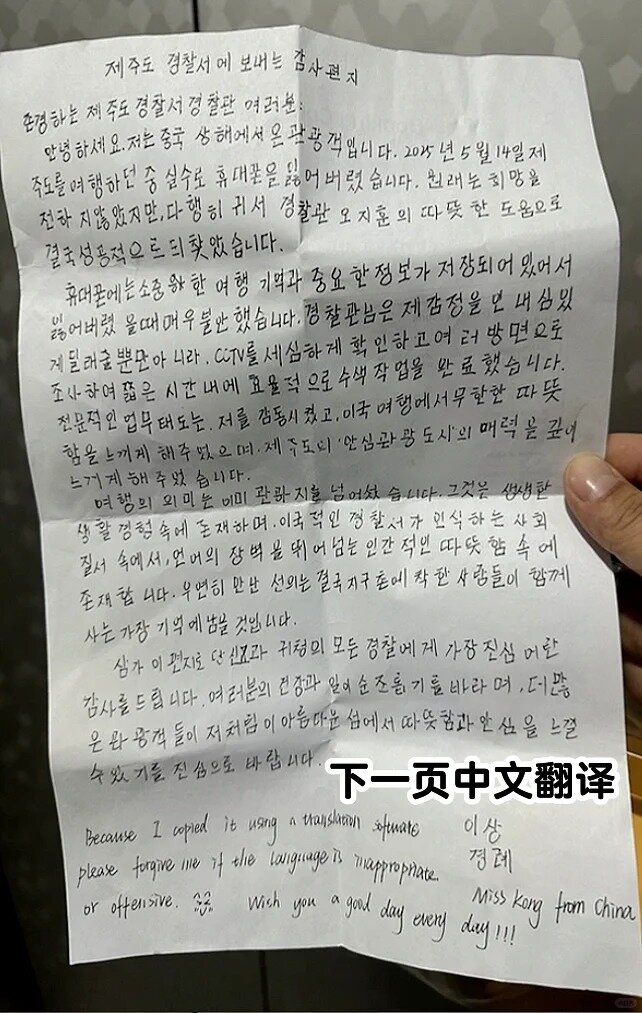 제주도 경찰서에 보내는 감사편지
존경하는 제주도경찰서경찰관 여러분:
안녕하세요. 저는 중국 상해에서 온 관광객입니다. 2025년 5월 14일 제
주도를 여행하던 중 실수로 휴대폰을 잃어버렸습니다. 원래는 희망을
전하지않았지만, 다행히 귀서 경찰관 오지훈의 따뜻한 도움으로
결국성공적으로 되찾았습니다.
휴대폰에는소중한 여행 기억과 중요한정보가 저장되어 있어서
잃어버렸을때매우불안했습니다. 경찰관님은 제감정을 인내심있
게달래줄뿐만아니라, CCTV를 세심하게 확인하고여러방면으로
조사하여 짧은 시간내에 효율적으로수색작업을 완료했습니다.
전문적인업무태도는. 저를 감동시켰고, 이국 여행에서무한한 따뜻
함을느끼게 해주었으며. 제주도의 '안심관광도시'의 매력을 깊이
느끼게해주었습니다.
여행의 의미는 이미 관광지를 넘어섰습니다. 그것은 생생한
생활경험속에 존재하며. 이국적인 경찰서가 인식하는 사회
질서 속에서, 언어의 장벽을뛰어넘는 인간적인 따뜻함 속에
존재합니다. 우연히 만난 선의는 결국지구촌에 착한사람들이 함께
사는가장기억에남을것입니다.
삼가 이 편지로 당신과 귀청의 모든 경찰에게 가장진심어린
감사를드립니다. 여러분의 건강과 일이순조롭기를바라며, 더많
은관광객들이 저처럼이아름다운섬에서따뜻함과안심을느낄
수있기를진심으로바랍니다.
下一页中文翻译
Because I copied it using a translation software 이상
please forgive me if the language is inappropriate. 경례
or offensive. Wish you a good day every day!!! Miss Kong from China